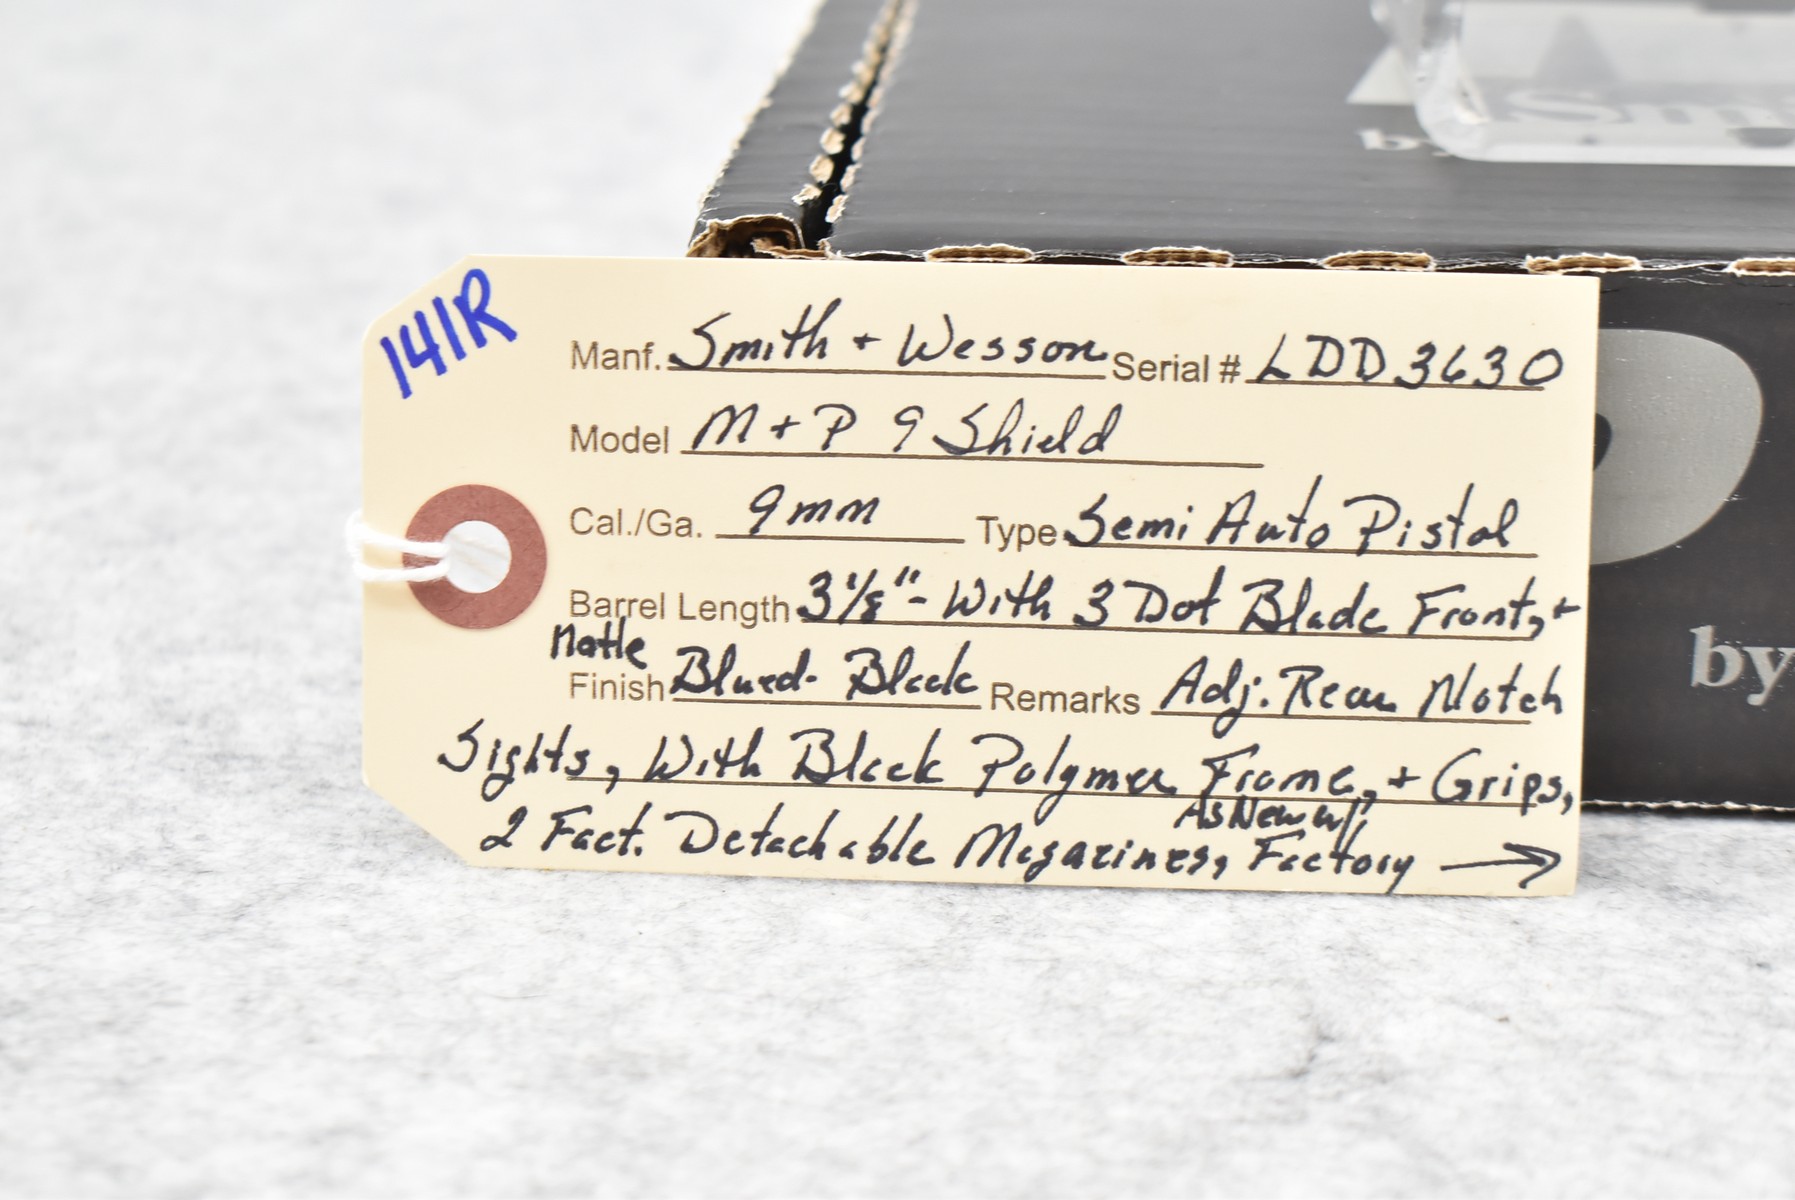 Smi
by
141R
Manf. Smith + Wesson Serial # LDD3630
Model M+P 9 Shield
Cal./Ga. 9mm Type Semi Auto Pistol
Barrel Length 3 1/8" - With 3 Dot Blade Front, +
Matte
Finish Blued - Black Remarks Adj. Rear Notch
Sights, With Black Polymer Frame, + Grips,
As New w/
2 Fact. Detachable Magazines, Factory →
by